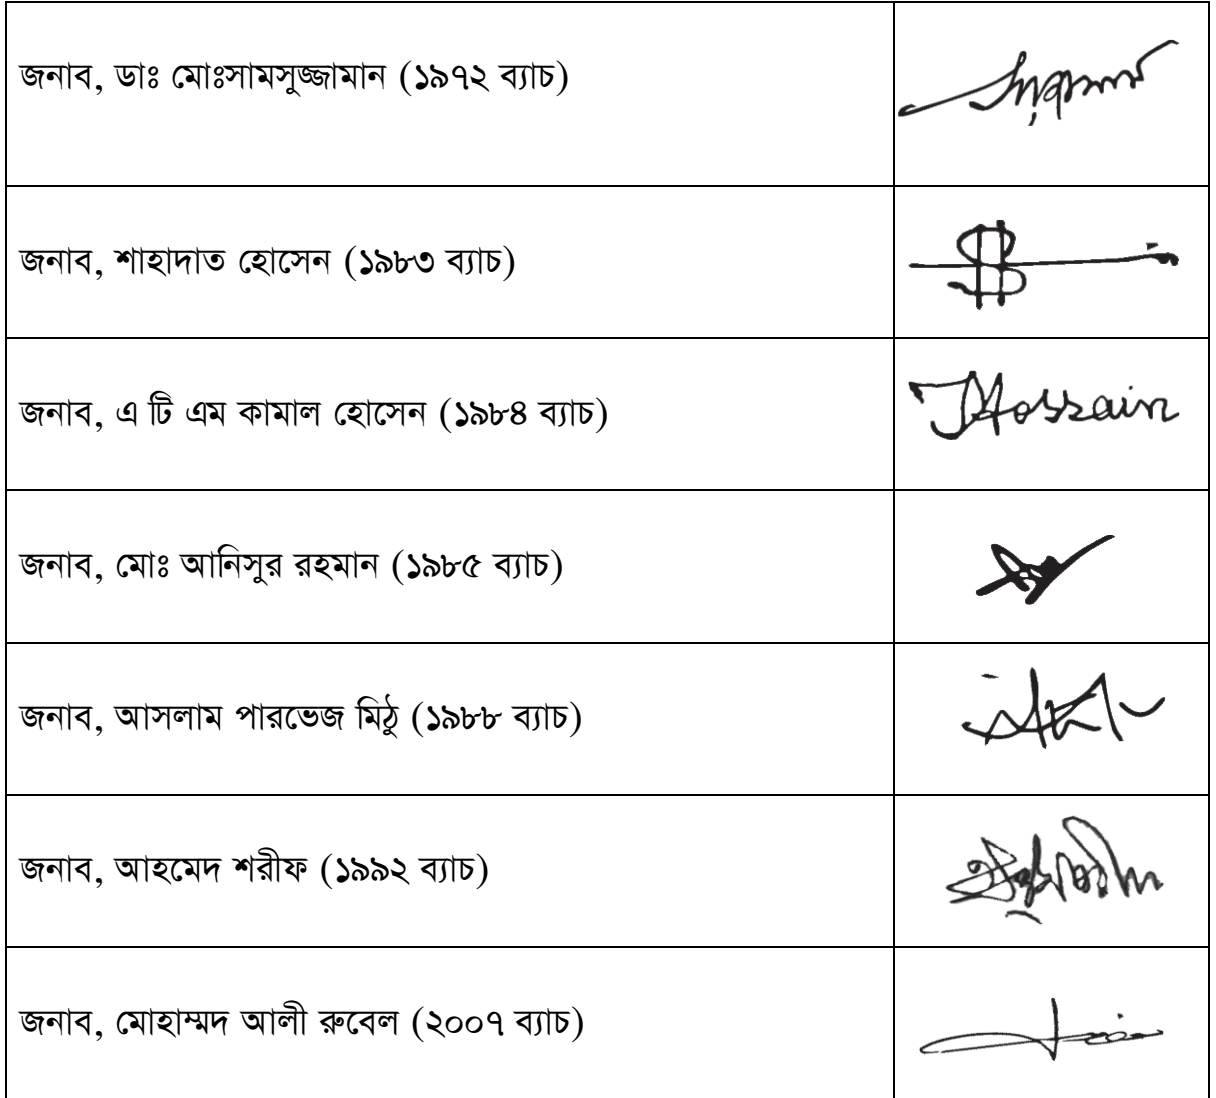 জনাব, ডাঃ মোঃসামসুজ্জামান (১৯৭২ ব্যাচ)
জনাব, শাহাদাত হোসেন (১৯৮৩ ব্যাচ)
জনাব, এ টি এম কামাল হোসেন (১৯৮৪ ব্যাচ)
Hossain
জনাব, মোঃ আনিসুর রহমান (১৯৮৫ ব্যাচ)
জনাব, আসলাম পারভেজ মিঠু (১৯৮৮ ব্যাচ)
জনাব, আহমেদ শরীফ (১৯৯২ ব্যাচ)
জনাব, মোহাম্মদ আলী রুবেল (২০০৭ ব্যাচ)